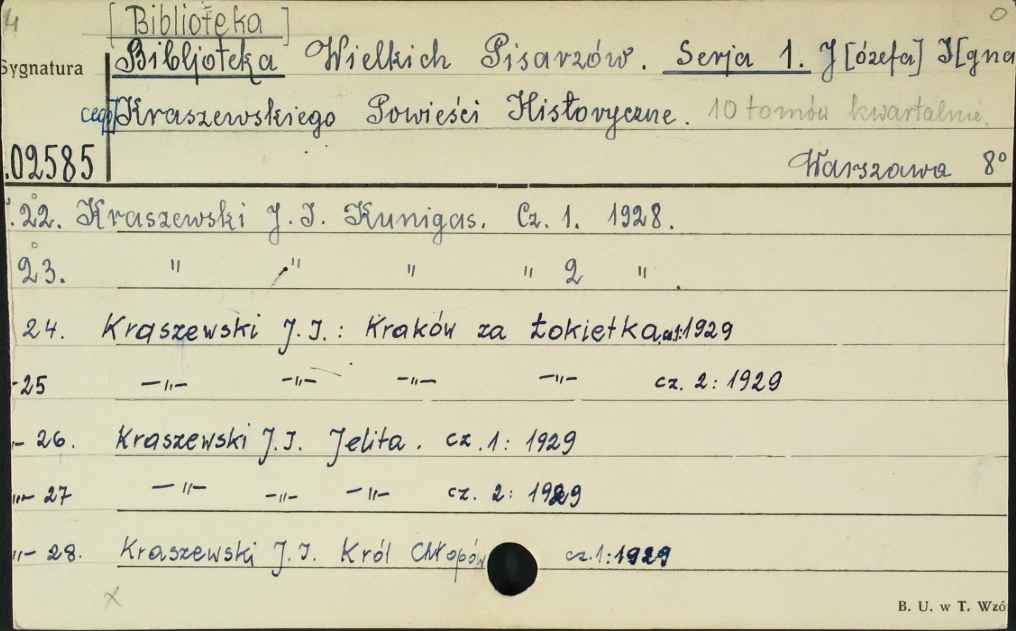 4 [Biblioteka] 0
Sygnatura Bibljoteka Wielkich Pisarzów. Serja 1. J[ózefa] I[gna
cego] Kraszewskiego Powieści Historyczne. 10 tomów kwartalnie.
.02585 Warszawa 8°
.22. Kraszewski J. I. Kunigas. Cz. 1. 1928.
23. " " " " 2 " .
24. Kraszewski J. I.: Kraków za Łokietka, cz. 1: 1929
-25 —"— —"— —"— —"— cz. 2: 1929
- 26. Kraszewski J. I. Jelita. cz. 1: 1929
"- 27 —"— —"— —"— cz. 2: 1929
"- 28. Kraszewski J. I. Król Chłopów cz. 1: 1929
x
B. U. w T. Wzó